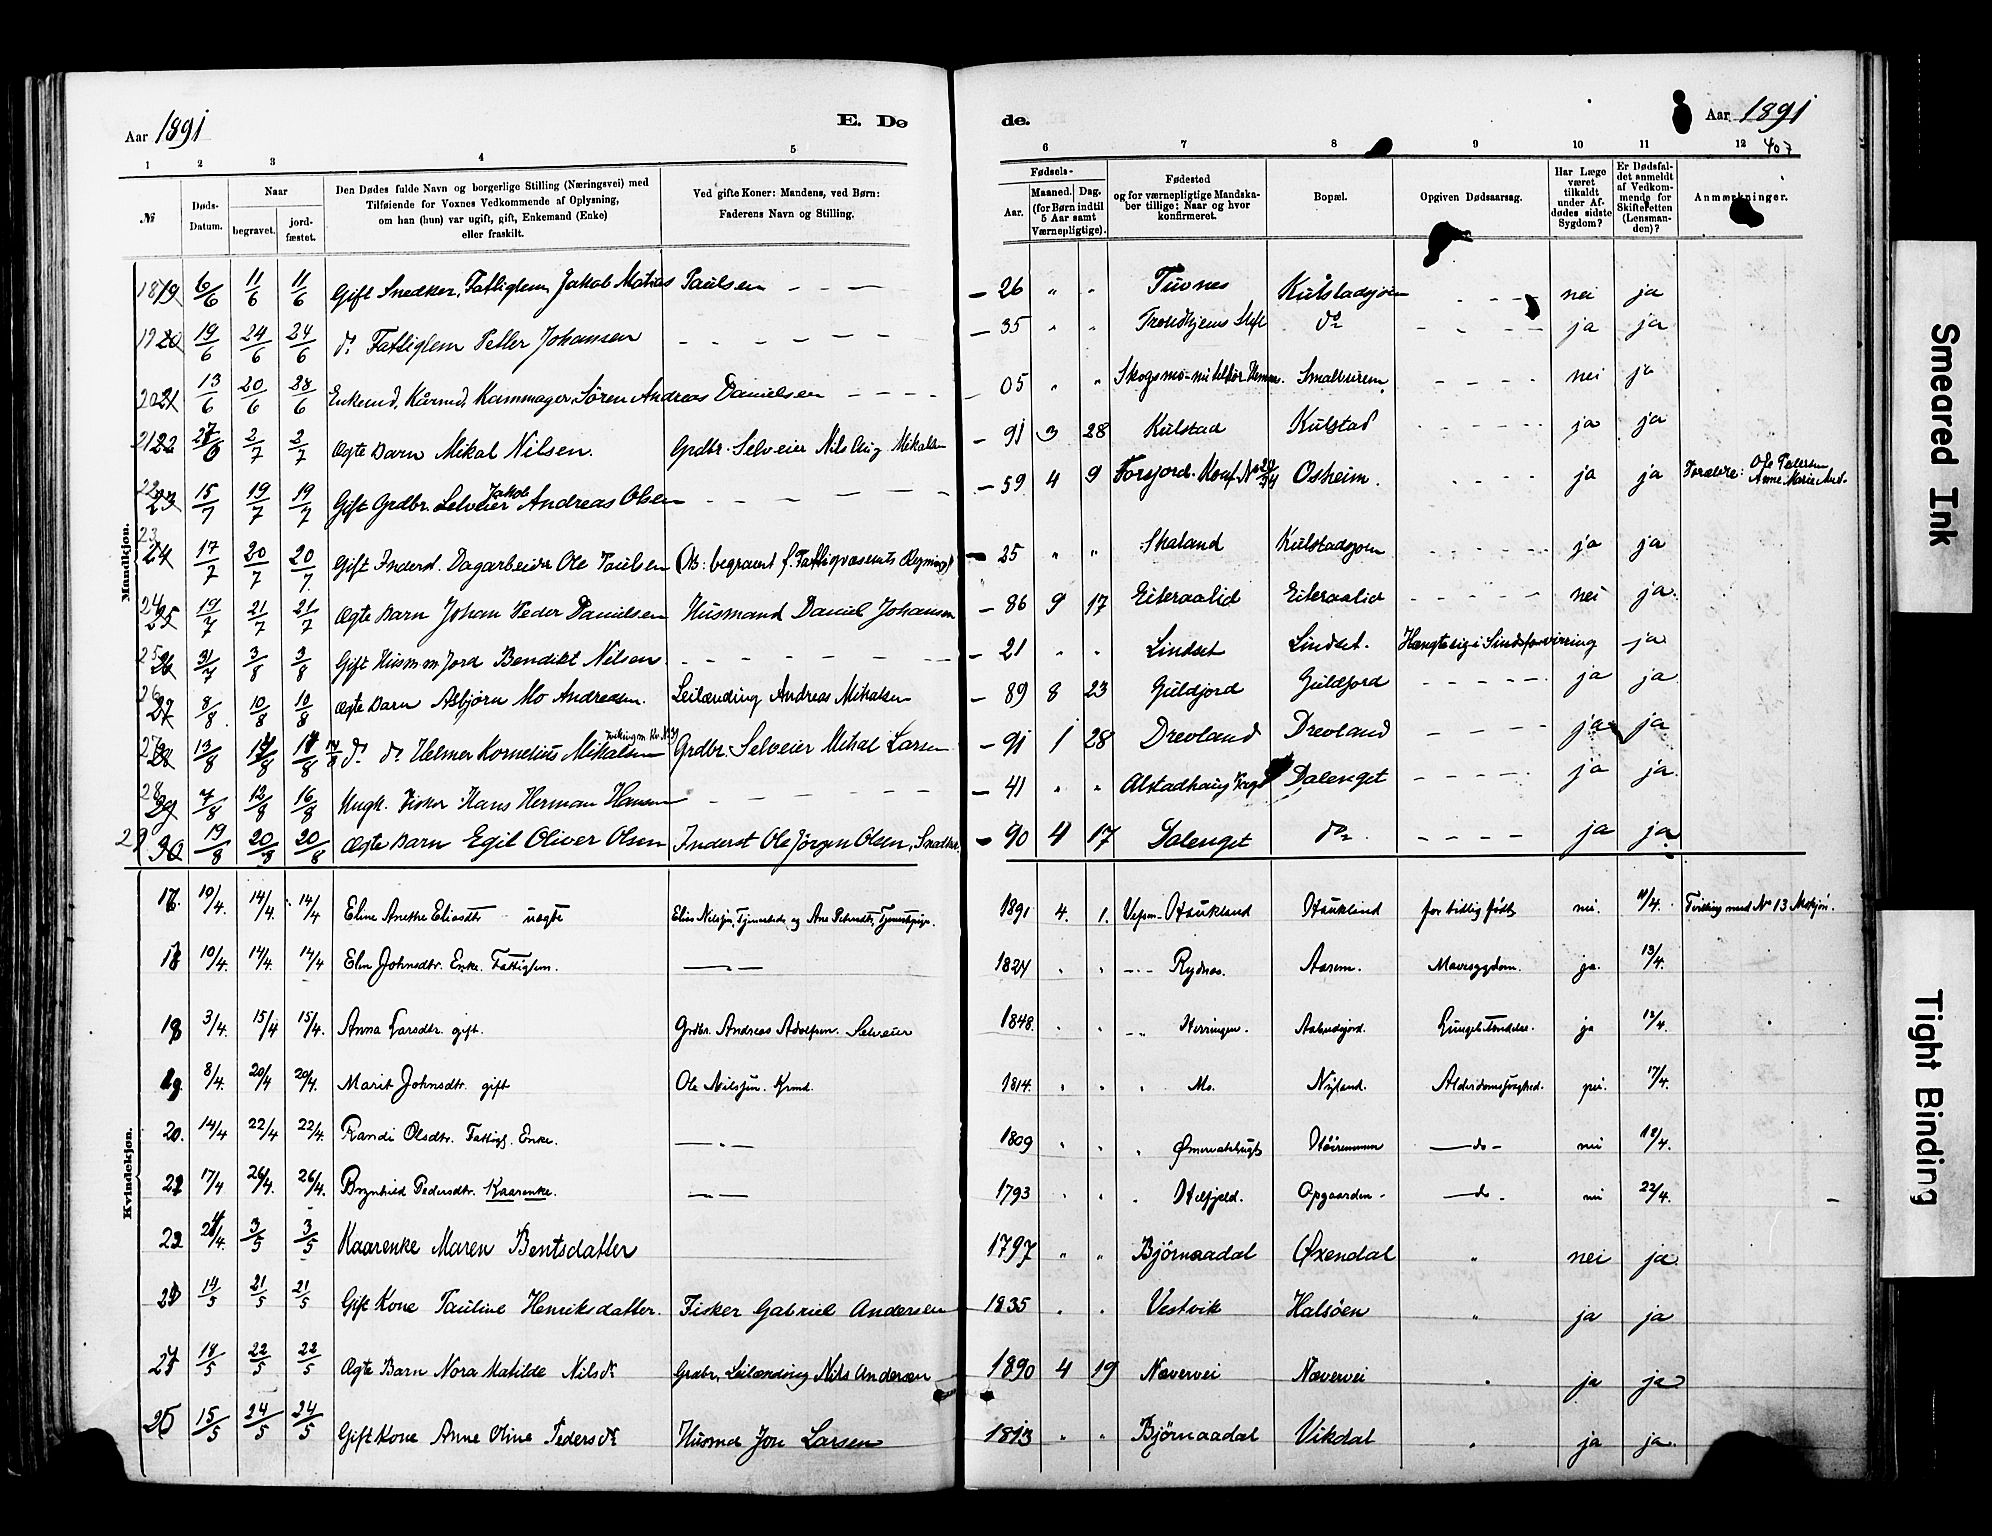 Aar 1891
E. Dø
de.
Aar 1891
407
1 2 3 4 5 6 7 8 9 10 11 12
№
Døds-Datum.
Naar
begravet.
jord-fæstet.
Den Dødes fulde Navn og borgerlige Stilling (Næringsvei) med
Tilføiende for Voxnes Vedkommende af Oplysning,
om han (hun) var ugift, gift, Enkemand (Enke)
eller fraskilt.
Ved gifte Koner: Mandens, ved Børn:
Faderens Navn og Stilling.
Fødsels-
Aar.
Maaned. Dag.
(for Børn indtil
5 Aar samt
Værnepligtige).
Fødested
og for værnepligtige Mandska-
ber tillige: Naar og hvor
konfirmeret.
Bopæl.
Opgiven Dødsaarsag.
Har Læge
været
tilkaldt
under Af-
dødes sidste
Sygdom?
Er Dødsfal-
det anmeldt
af Vedkom-
mende for
Skifteretten
(Lensman-
den)?
Anmærkninger.
Mandkjøn.
18 19 6/6 11/6 11/6 Gift Snedker, Fattiglem Jakob Matias Paulsen - - - - 26 " " Tuvnes Kulstadsjøen - - - nei ja
19 20 19/6 24/6 24/6 do Fattiglem Petter Johansen - - - - 35 " " Trondhjems Stift do - - - ja ja
20 21 13/6 20/6 28/6 Enkemd. Kaarmd. Kammager Søren Andreas Danielsen - - - - 05 " " Smalveiren - - - nei ja
21 22 27/6 2/7 2/7 Ægte Barn Mikal Nilsen. Grdbr. Selveier Nils Aug Mikalsen - 91 3 28 Kulstad Kulstad - - - ja ja
22 23 15/7 19/7 19/7 Gift Grdbr. Selveier Jakob Andreas Olsen - - - - 59 4 9 Forsjord. Konf. Osheim. ja ja Forældre: Ole Petersen Anne Marie And.
23 24 17/7 20/7 20/7 Gift Inderst. Dagarbeider Ole Paulsen (Ob: begravet f. Fattigvæsenets Regning) - 25 " " Skaland Kulstadsjøen - - - ja ja
24 25 19/7 21/7 21/7 Ægte Barn Johan Peder Danielsen Husmand Daniel Johansen - 86 9 17 Eiteraalid Eiteraalid - - - nei ja
25 26 31/7 3/8 3/8 Gift Husm m Jord Bendikt Nilsen - - - - 21 " " Lindset Lindset. Hængte sig i Sindsforvirring ja
26 27 8/8 10/8 10/8 Ægte Barn Asbjørn Mo Andreasen. Leilænding Andreas Mikalsen - 89 8 23 Guldfjord Guldfjord - - - ja ja
27 28 13/8 do do Helmer Kornelius Mikalsen Grdbr. Selveier Mikal Larsen - 91 1 28 Drevland Drevland - - - ja ja
28 29 7/8 12/8 16/8 Ungk. Fisker Hans Herman Hansen - - - - 41 " " Alstadhaug Dalenget - - - ja ja
29 30 19/8 20/8 20/8 Ægte Barn Egil Oliver Olsen Inderst Ole Jørgen Olsen, - 90 4 17 Dalenget do - - - ja ja
Kvindekjøn.
16. 10/4. 14/4. 14/4 Eline Anethe Eliasdtr uægte Elias Nilssen, og Ane 1891 4. 1. Vefsen - Haukland Haukland for tidlig født nei. 11/4. Tvilling med No 13 Mandkjøn.
17 10/4. 14/4. 14/4 Elen Johnsdtr. Enke. Fattiglem. 1824 " " Rydnes. Aarem. Mavesygdom. ja. 13/4.
18 3/4. 15/4 15/4. Anna Larsdtr. gift. Grdbr. Andreas Adolfsen. Selveier 1848. " " Herringen. Lungebetændelse. ja 12/4.
19 8/4. 20/4 20/4. Marit Johnsdtr. gift Ole Nilssen. Krmd. 1814. " " Mo. Nyland. Alderdomssvaghed. nei. 17/4.
20. 14/4 22/4 22/4. Randi Olsdtr. Fattigl. Enke. 1809 " " -do- nei 18/4.
21 17/4 26/4. 26/4. Brynhild Pedersdtr. Kaarenke. 1793 " " Helfjeld. Opgaarden. -do- nei 22/4.
22 3/5 3/5 Kaarenke Maren Bentsdatter 1797 " " Bjørnaadal Øxendal " nei ja
23 14/5 21/5 21/5 Gift Kone Pauline Henriksdatter. Fisker Gabriel Andersen 1835 " " Vestvik Halsøen " ja ja
24 18/5 22/5 22/5 Ægte Barn Nora Matilde Nilsdtr Grdbr. Leilænding Nils Andersen 1890 4 19 Nævervei Nævervei " ja ja
25 15/5 24/5 24/5 Gift Kone Anne Oline Pedersdtr Husmd Jon Larsen 1813 " " Bjørnaadal Vikdal " ja ja
Smeared Ink
Tight Binding